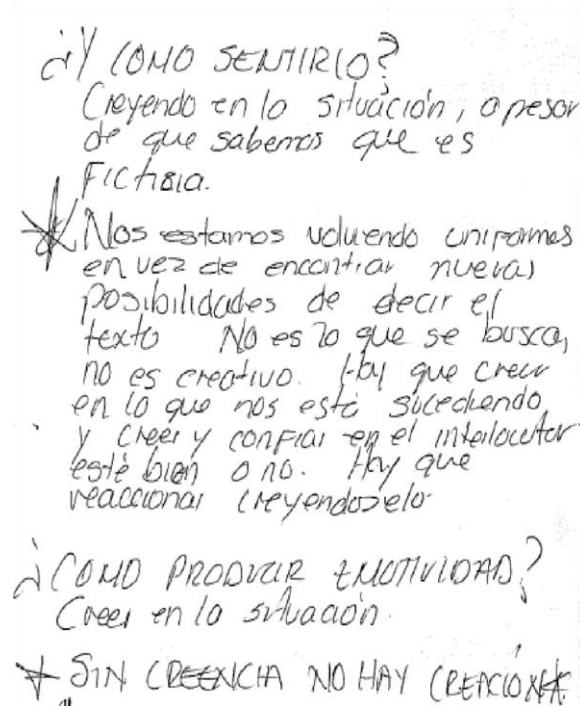 ¿Y COMO SENTIRLO?
Creyendo en la situación, a pesar
de que sabemos que es
Ficticia.
* Nos estamos volviendo uniformes
en vez de encontrar nuevas
posibilidades de decir el
texto No es lo que se busca,
no es creativo. Hay que creer
en lo que nos está sucediendo
y creer y confiar en el interlocutor
esté bien o no. Hay que
reaccionar creyendoselo.
¿COMO PRODUCIR EMOTIVIDAD?
Creer en la situación.
* SIN CREENCIA NO HAY CREACIÓN *